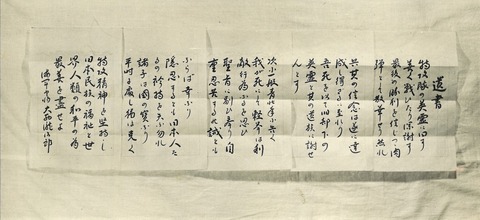 遺書
特攻隊の英霊に曰す
善く戦ひたり深謝す
最後の勝利を信じつゝ肉
弾として散華せり然れ
共其の信念は遂に達
成し得ざるに至れり
吾死を以て旧部下の
英霊と其の遺族に謝せ
んとす
次に一般青壮年に告ぐ
我が死にして軽挙は利
敵行為なるを思ひ
聖旨に副ひ奉り自
重忍苦するの誡とも
ならば幸なり
隠忍するとも日本人た
るの矜持を失ふ勿れ
諸子は国の宝なり
平時に處し猶ほ克く
特攻精神を堅持し
日本民族の福祉と世
界人類の和平の為
最善を盡せよ
海軍中将大西瀧治郎